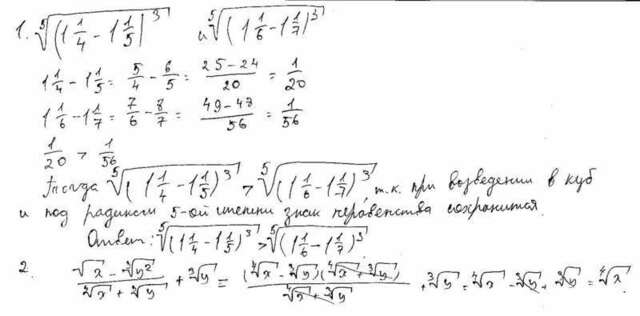 1. ⁵√(1 1/4 − 1 1/5)³ и ⁵√(1 1/6 − 1 1/7)³
1 1/4 − 1 1/5 = 5/4 − 6/5 = (25−24)/20 = 1/20
1 1/6 − 1 1/7 = 7/6 − 8/7 = (49−47)/56 = 1/56
1/20 > 1/56
Тогда ⁵√(1 1/4 − 1 1/5)³ > ⁵√(1 1/6 − 1 1/7)³ т.к. при возведении в куб
и под радикал 5-ой степени знак неравенства сохранится.
Ответ: ⁵√(1 1/4 − 1 1/5)³ > ⁵√(1 1/6 − 1 1/7)³
2.